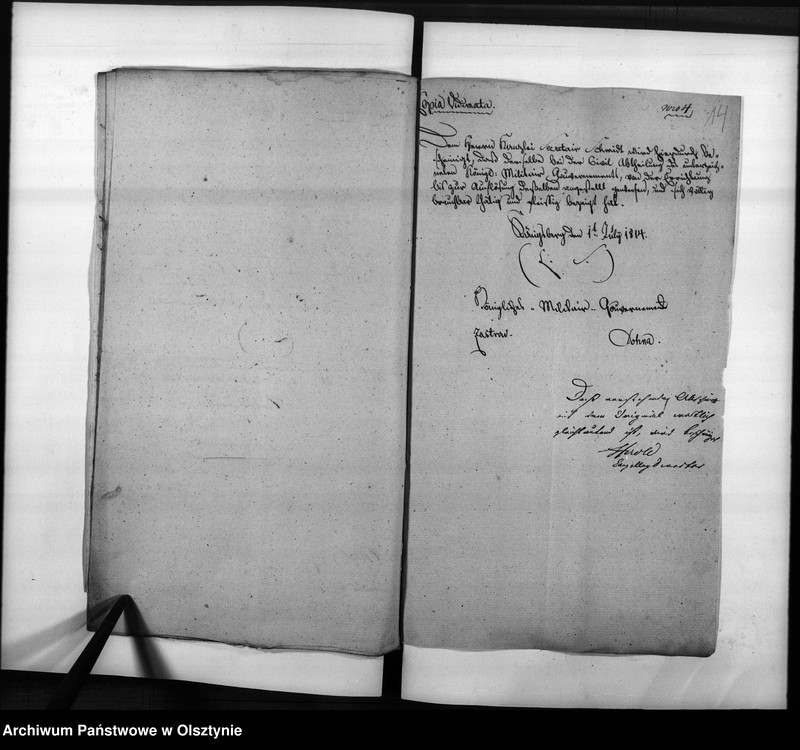 Copia Vidimata.
No 4
14
Dem Herrn Kanzlei Secretair Schmidt wird hierdurch be-
scheinigt, daß derselbe bei der Civil Abtheilung des unterzeich-
neten Königl. Militair Gouvernements, von der Errichtung
bis zur Auflösung desselben angestellt gewesen, und sich völlig
brauchbar thätig und fleißig bezeigt hat.
Königsberg den 1t July 1814.
(L. S.)
Königliches - Militair - Gouvernement
Zastrow. Dohna.
Daß vorstehende Abschrift
mit dem Original wörtlich
gleichlautend ist, wird bescheinigt
Herold
Archiwum Państwowe w Olsztynie